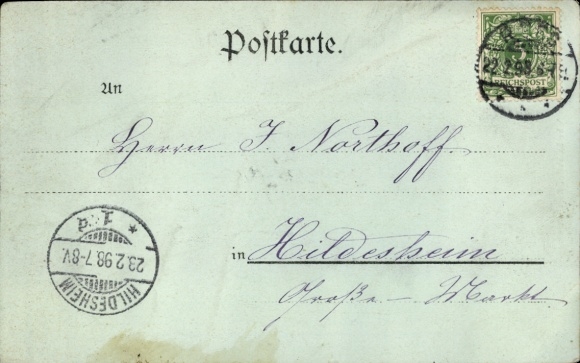 Postkarte.
REICHSPOST
22.2.98.
An
Herrn J. Northoff.
in Hildesheim
Große - Markt
HILDESHEIM
23.2.98.7-8V.
* 1